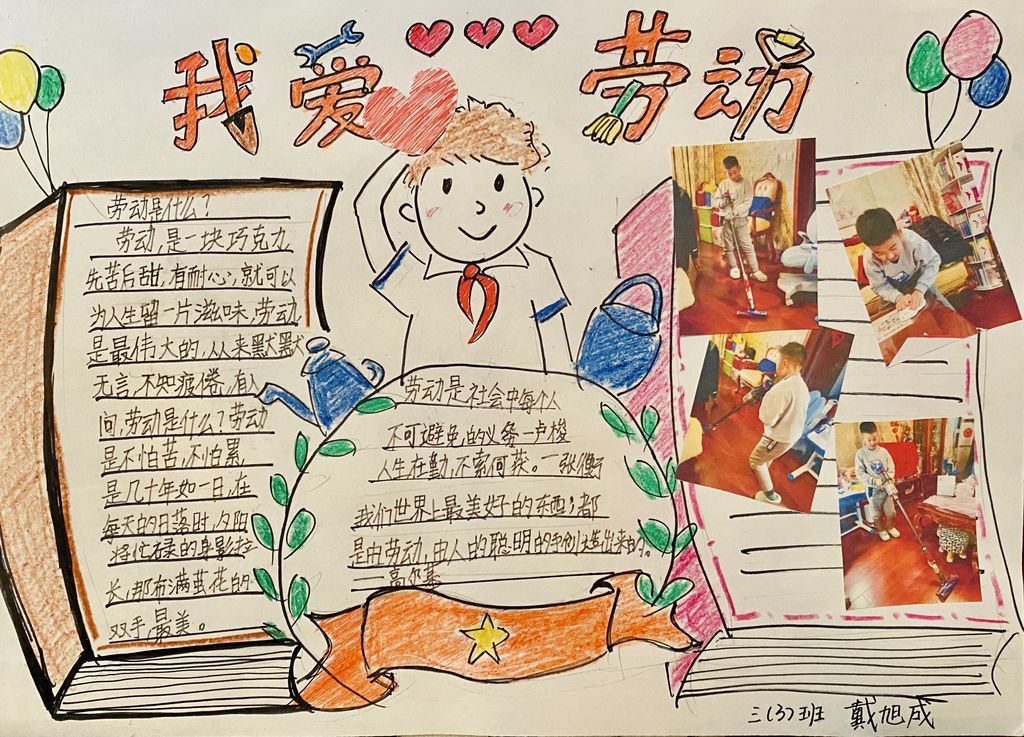 我爱劳动
劳动是什么?
劳动,是一块巧克力,
先苦后甜,有耐心,就可以
为人生留一片滋味,劳动
是最伟大的,从来默默
无言,不知疲倦,有人
问,劳动是什么?劳动
是不怕苦,不怕累
是几十年如一日,在
每天的日落时,夕阳
将忙碌的身影拉
长,那布满茧花的
双手,最美。
劳动是社会中每个人
不可避免的义务—卢梭
人生在勤,不索何获。—张衡
我们世界上最美好的东西,都
是由劳动,由人的聪明的手创造出来的。
——高尔基
三(3)班 戴旭成